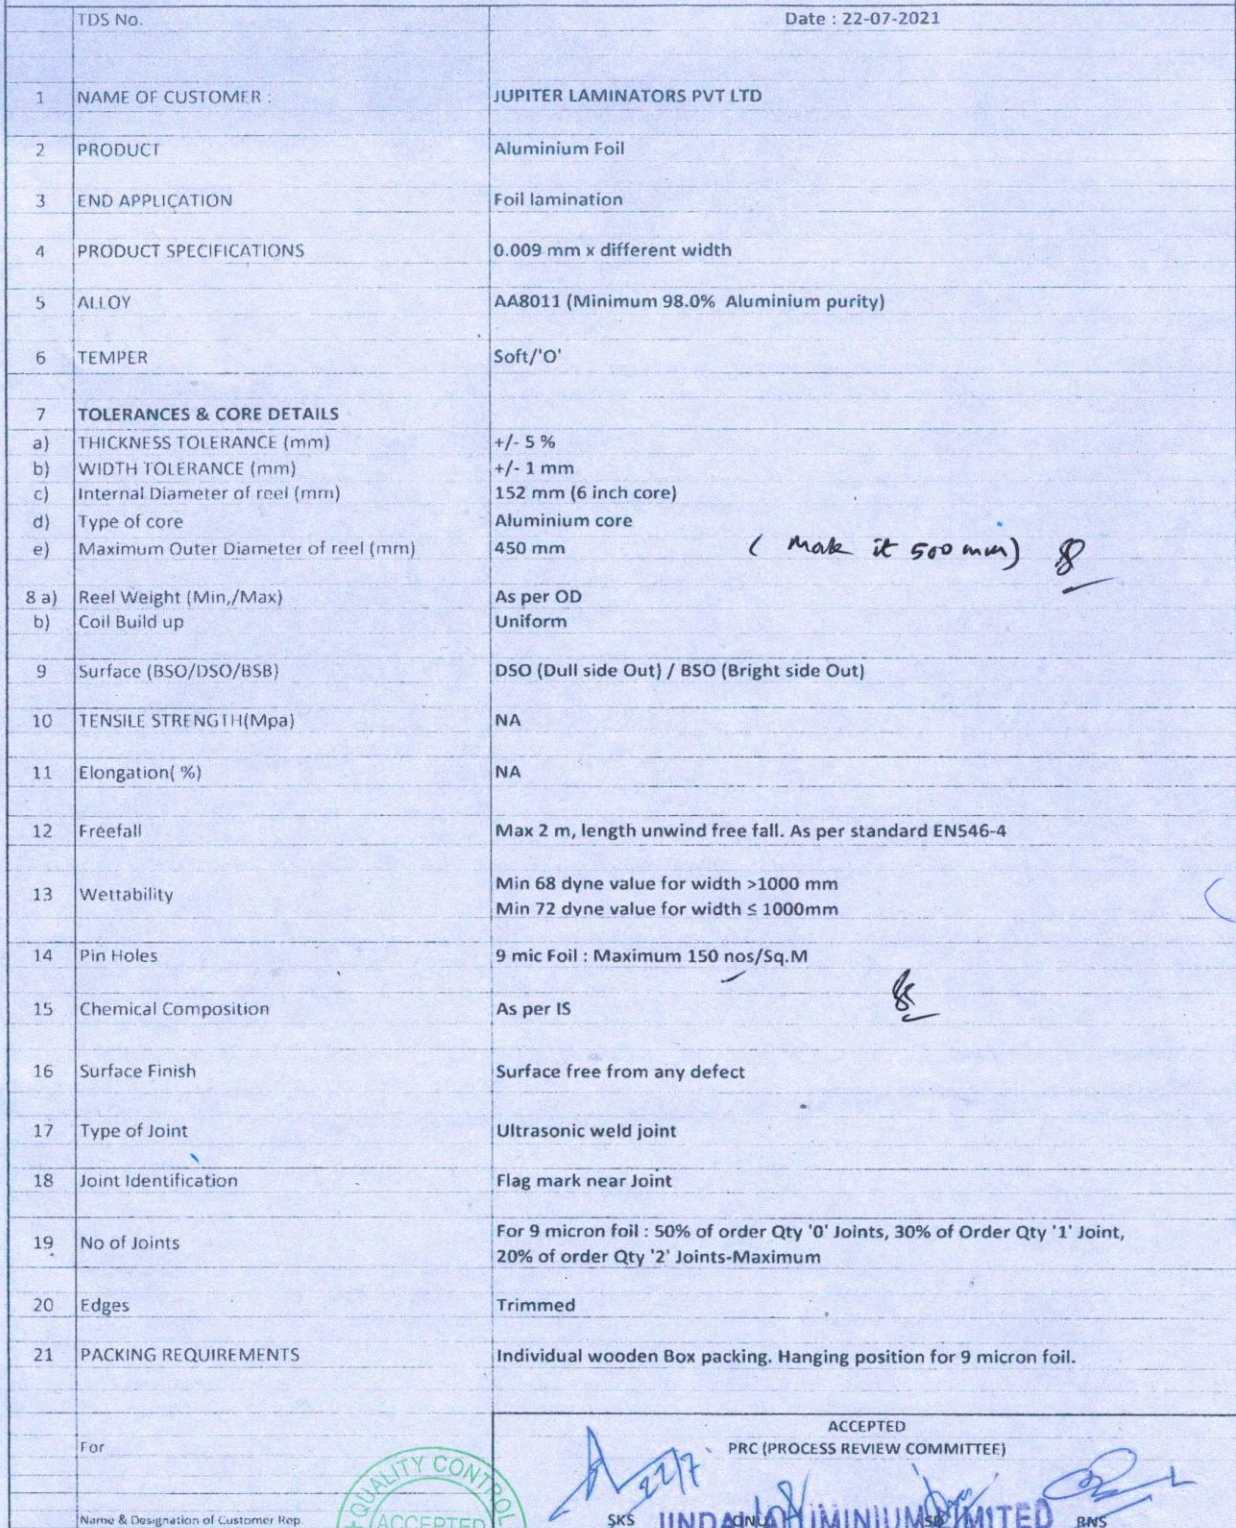 TDS No. Date : 22-07-2021
1 NAME OF CUSTOMER : JUPITER LAMINATORS PVT LTD
2 PRODUCT Aluminium Foil
3 END APPLICATION Foil lamination
4 PRODUCT SPECIFICATIONS 0.009 mm x different width
5 ALLOY AA8011 (Minimum 98.0% Aluminium purity)
6 TEMPER Soft/'O'
7 TOLERANCES & CORE DETAILS
a) THICKNESS TOLERANCE (mm) +/- 5 %
b) WIDTH TOLERANCE (mm) +/- 1 mm
c) Internal Diameter of reel (mm) 152 mm (6 inch core)
d) Type of core Aluminium core
e) Maximum Outer Diameter of reel (mm) 450 mm ( Make it 500 mm)
8 a) Reel Weight (Min,/Max) As per OD
b) Coil Build up Uniform
9 Surface (BSO/DSO/BSB) DSO (Dull side Out) / BSO (Bright side Out)
10 TENSILE STRENGTH(Mpa) NA
11 Elongation( %) NA
12 Freefall Max 2 m, length unwind free fall. As per standard EN546-4
13 Wettability Min 68 dyne value for width >1000 mm
Min 72 dyne value for width ≤ 1000mm
14 Pin Holes 9 mic Foil : Maximum 150 nos/Sq.M
15 Chemical Composition As per IS
16 Surface Finish Surface free from any defect
17 Type of Joint Ultrasonic weld joint
18 Joint Identification Flag mark near Joint
19 No of Joints For 9 micron foil : 50% of order Qty '0' Joints, 30% of Order Qty '1' Joint,
20% of order Qty '2' Joints-Maximum
20 Edges Trimmed
21 PACKING REQUIREMENTS Individual wooden Box packing. Hanging position for 9 micron foil.
ACCEPTED
For PRC (PROCESS REVIEW COMMITTEE)
22/7
QUALITY CONTROL
ACCEPTED
Name & Designation of Customer Rep. SKS BNS
JINDAL ALUMINIUM LIMITED